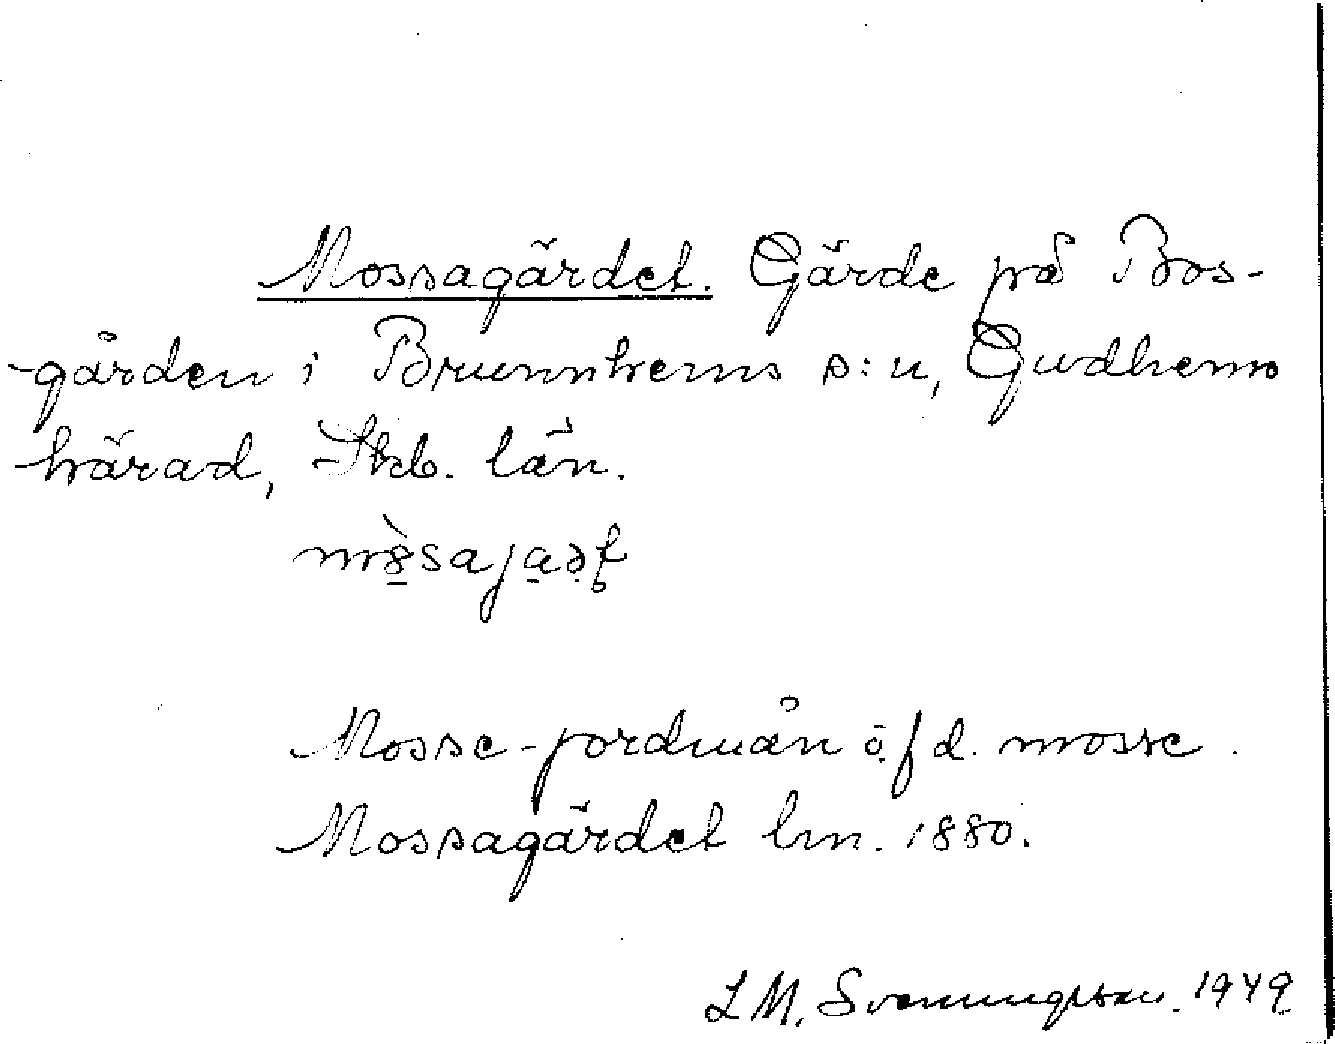 Mossagärdet. Gärde på Bos-
-gården i Brunnhems s:n, Gudhems
härad, Skb. län.
Mosse-jordmån o. f d. mosse.
Mossagärdet lm. 1880.
L M. Svenungsson. 1949